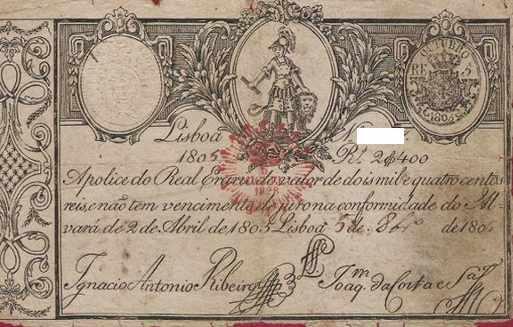 OUTUBRO
RE 5
1805
Lisboa N
1805 Rs. 2$400
Apolice do Real Erario do valor de dois mil e quatro centos
reis, e não tem vencimento de juro na conformidade do Al-
vará de 2 de Abril de 1805 Lisboa 5 de 8bro de 1805
Ignacio Antonio Ribeiro Joaq. da Costa e